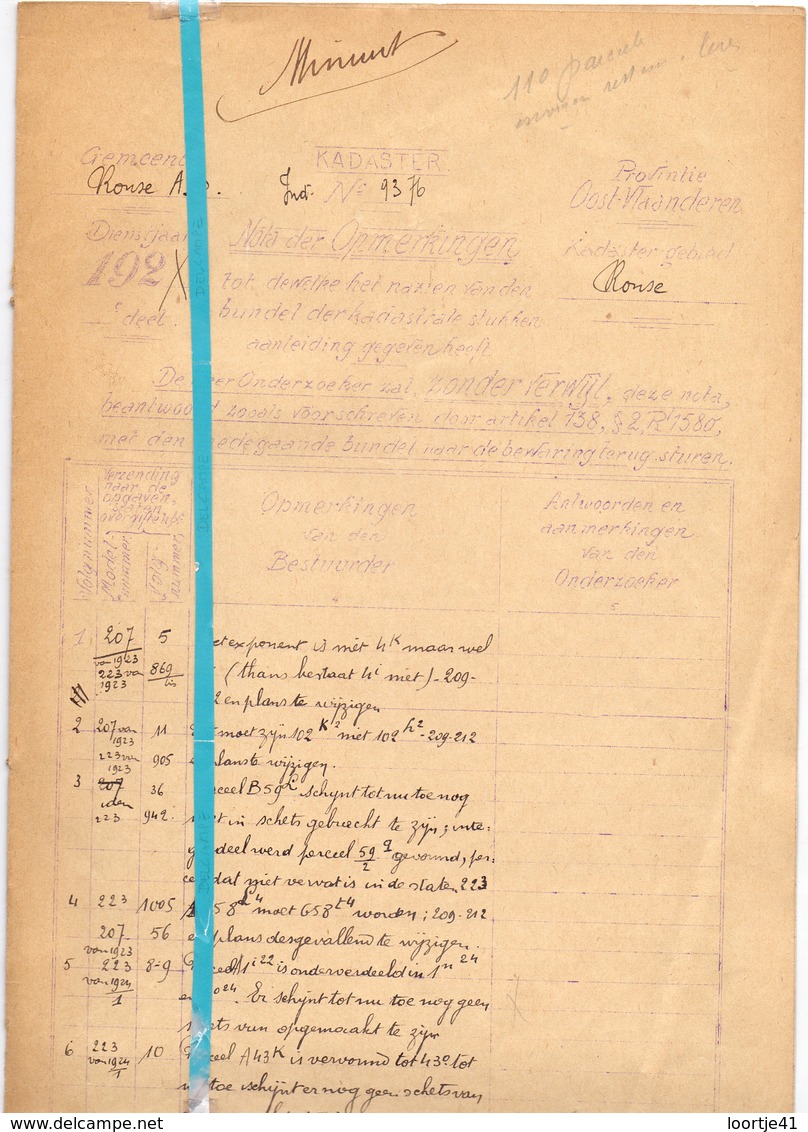 Minuut
110 parcels
Gemeent
Ronse A.
KADASTER
Ind. No 9376
Provintie
Oost-Vlaanderen
Dienstjaar
192
e deel.
Nota der Opmerkingen
Kadaster-gebied
Ronse
tot dewelke het nazien van den
bundel der kadastrale stukken
aanleiding gegeven heeft
De eer Onderzoeker zal, zonder verwijl, deze nota,
beantwoord zooals voorschreven door artikel 738, § 2, Rt 1580,
met den edegaande bundel naar de bewaring terug sturen.
Volgnummer
Verzending
naar de
opgaven
staten
Model-
nummer
Volg-
nummer
Opmerkingen
van den
Bestuurder
4
Antwoorden en
aanmerkingen
van den
Onderzoeker
5
1 207 van 1923 5 et exponent is niet 4K maar wel
223 van 1923 869 bis (thans bestaat 4i niet) - 209-
2 en plans te wijzigen
2 207 van 1923 11 moet zijn 102 k2 niet 102 h2 - 209-212
223 van 1923 905 planste wijzigen.
3 207 36 ceel B59 schijnt tot nu toe nog
idem 223 942. t in schets gebracht te zijn; inte-
gendeel werd perceel 59/2 q gevormd, per-
ceel dat niet vervat is in de staten 223
4 223 1005 58 d4 moet G58 t4 worden; 209-212
207 van 1923 56 en plans desgevallend te wijzigen.
5 223 van 1924/1 8-9 Perceel A1 i22 is onderverdeeld in 1n 24
en o24. Er schijnt tot nu toe nog geen
schets van opgemaakt te zijn
6 223 van 1924/1 10 Perceel A43K is vervormd tot 43o tot
nu toe schijnt er nog geen schets van
DELCAMPE
DELCAMPE
DELCAMPE
loortje41